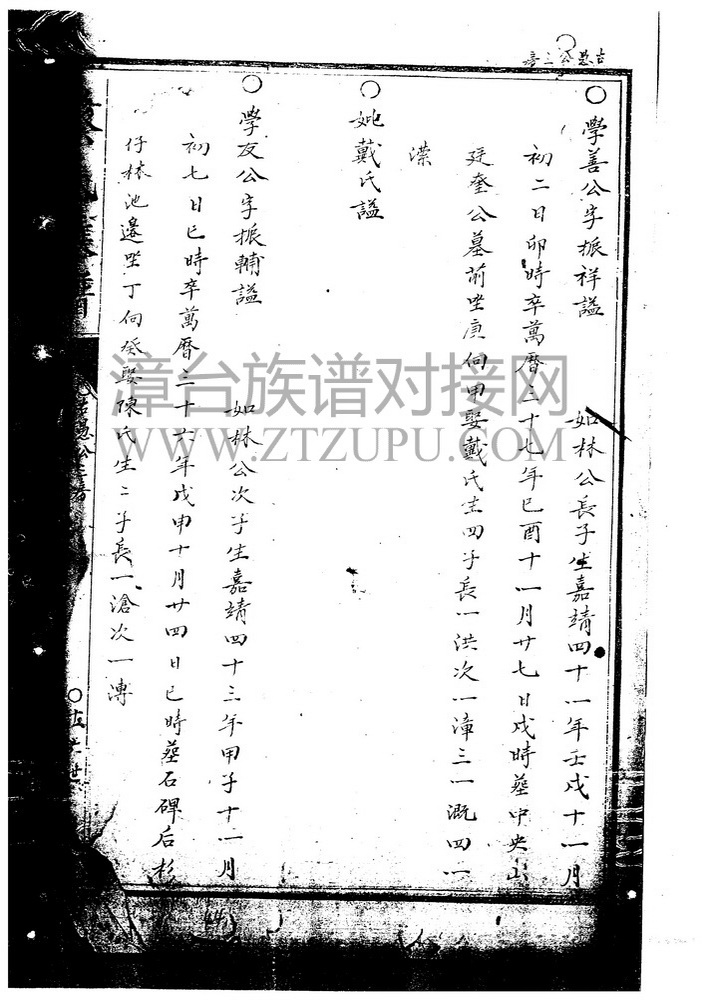 吉愚公三房
學善公字振祥諡　如林公長子生嘉靖四十一年壬戌十一月
初二日卯時卒萬曆三十七年己酉十一月廿七日戌時葬中央山
廷奎公墓前坐庚向甲娶戴氏生四子長一洪次一漳三一溉四一
濚
妣戴氏諡
學友公字振輔諡　如林公次子生嘉靖四十三年甲子十一月
初七日巳時卒萬曆三十六年戊申十月廿四日巳時葬石碑后杉
仔林池邊坐丁向癸娶陳氏生二子長一滄次一漙
漳台族谱对接网
WWW.ZTZUPU.COM